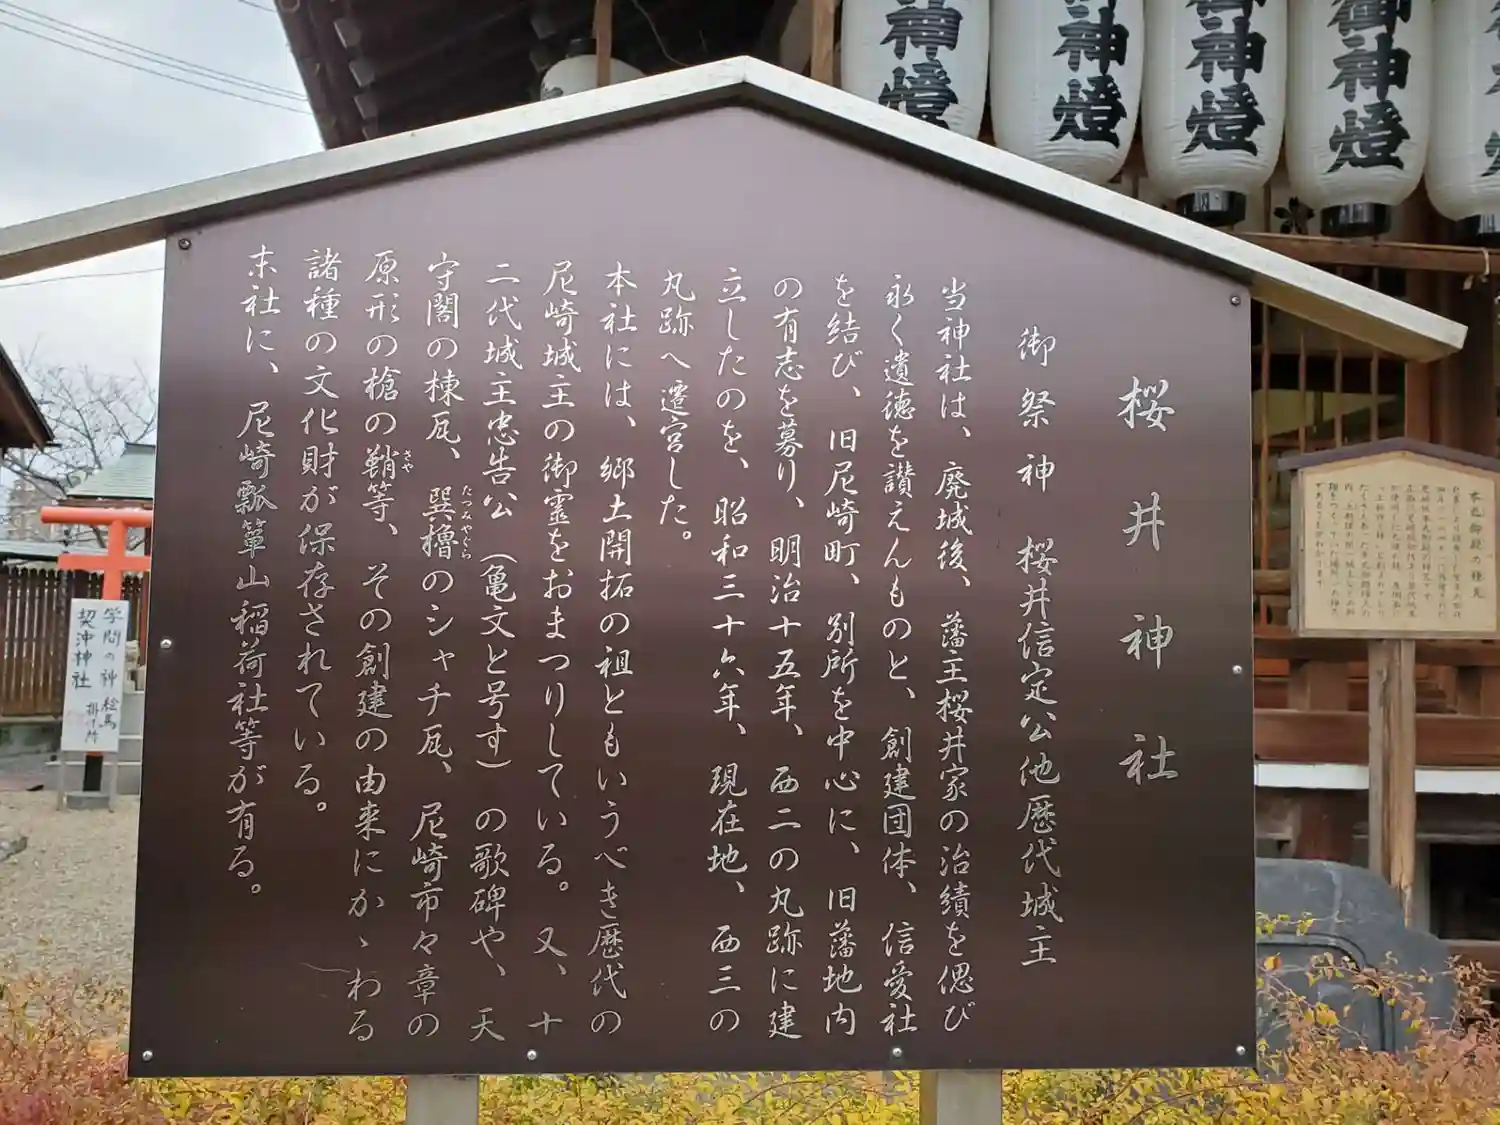 桜井神社
御祭神 桜井信定公他歴代城主
当神社は、廃城後、藩主桜井家の治績を偲び
永く遺徳を讃えんものと、創建団体、信愛社
を結び、旧尼崎町、別所を中心に、旧藩地内
の有志を募り、明治十五年、西二の丸跡に建
立したのを、昭和三十六年、現在地、西三の
丸跡へ遷宮した。
本社には、郷土開拓の祖ともいうべき歴代の
尼崎城主の御霊をおまつりしている。又、十
二代城主忠告公（亀文と号す）の歌碑や、天
守閣の棟瓦、巽櫓のシャチ瓦、尼崎市々章の
たつみやぐら
原形の槍の鞘等、その創建の由来にかゝわる
さや
諸種の文化財が保存されている。
末社に、尼崎瓢箪山稲荷社等が有る。
御神燈
御神燈
御神燈
御神燈
学問の神 絵馬
契沖神社 掛け所